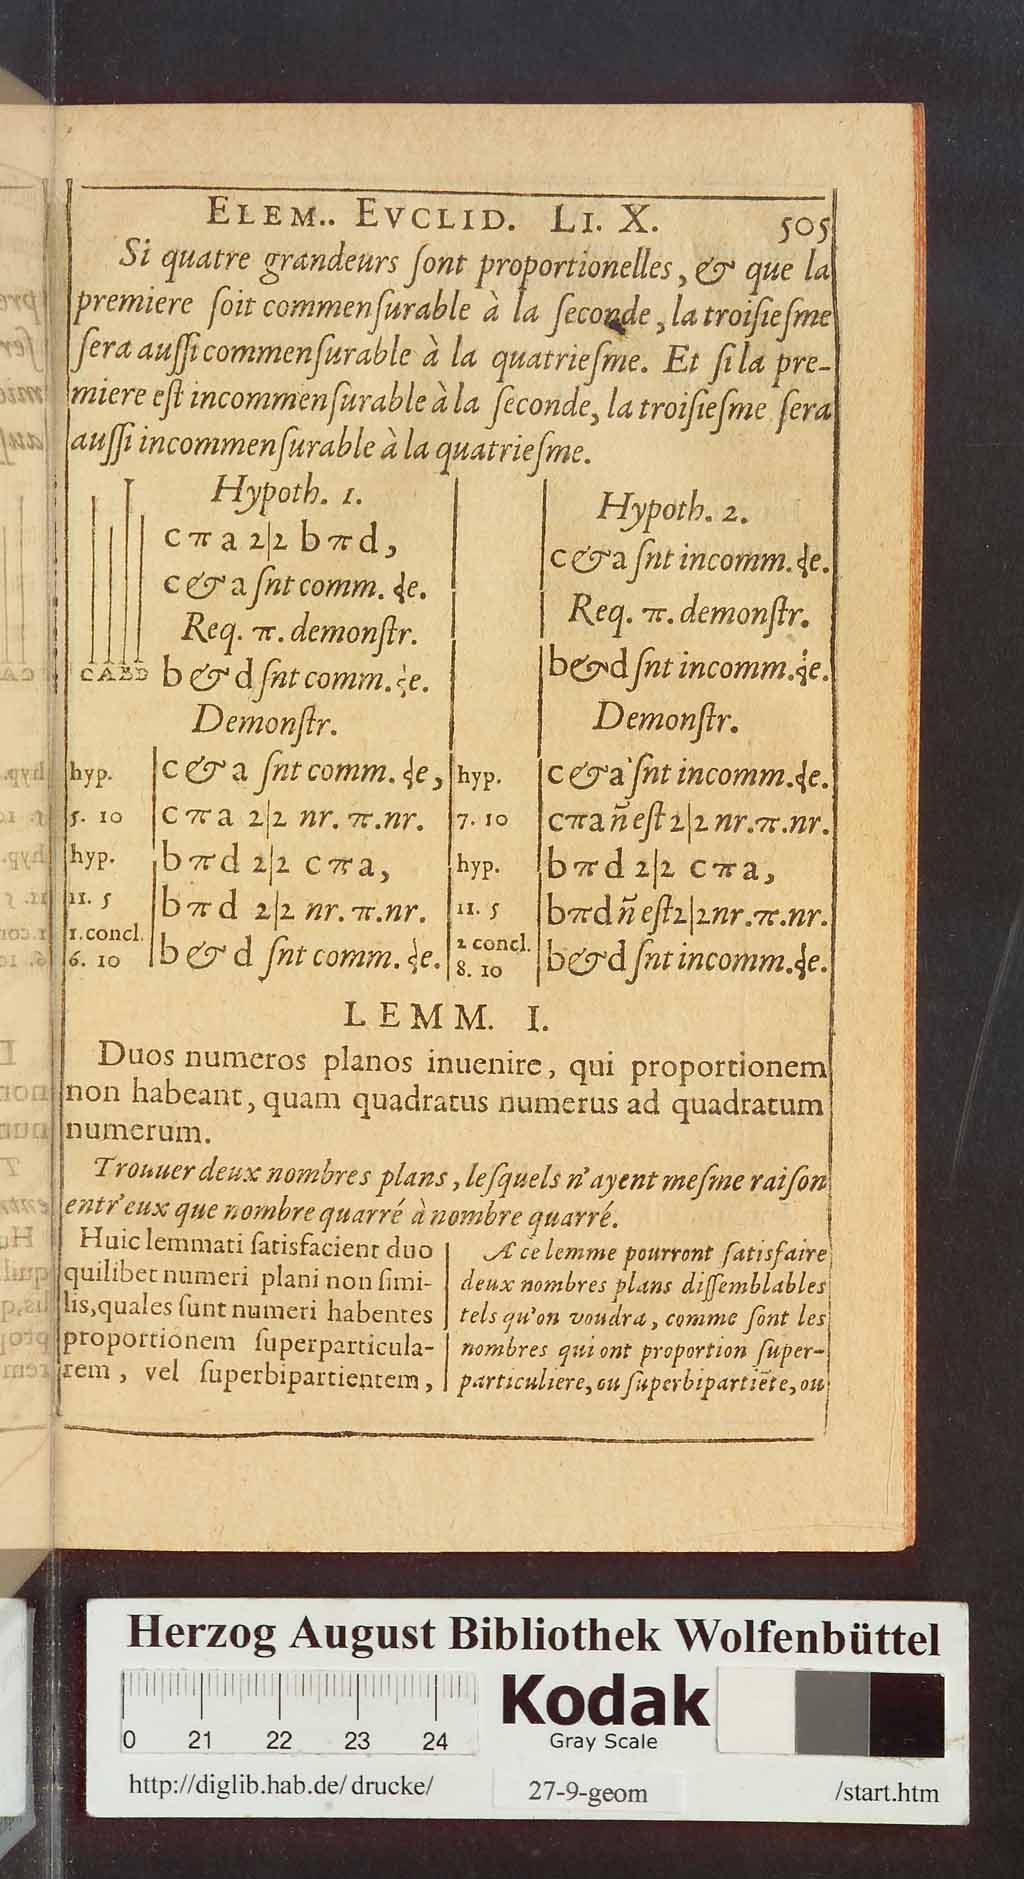 ELEM.. EVCLID. LI. X. 505
Si quatre grandeurs ſont proportionelles, & que la
premiere ſoit commenſurable à la ſeconde, la troiſieſme
ſera auſſi commenſurable à la quatrieſme. Et ſi la pre-
miere eſt incommenſurable à la ſeconde, la troiſieſme ſera
auſſi incommenſurable à la quatrieſme.
Hypoth. 1.
c π a 2|2 b π d,
c & a ſnt comm. ɟe.
Req. π. demonſtr.
CABD b & d ſnt comm. ɟe.
Demonſtr.
hyp. c & a ſnt comm. ɟe,
5. 10 c π a 2|2 nr. π. nr.
hyp. b π d 2|2 c π a,
11. 5 b π d 2|2 nr. π. nr.
1. concl.
6. 10 b & d ſnt comm. ɟe.
Hypoth. 2.
c & a ſnt incomm. ɟe.
Req. π. demonſtr.
b & d ſnt incomm. ɟe.
Demonſtr.
hyp. c & a ſnt incomm. ɟe.
7. 10 c π a ñ eſt 2|2 nr. π. nr.
hyp. b π d 2|2 c π a,
11. 5 b π d ñ eſt 2|2 nr. π. nr.
2 concl.
8. 10 b & d ſnt incomm. ɟe.
LEMM. I.
Duos numeros planos inuenire, qui proportionem
non habeant, quam quadratus numerus ad quadratum
numerum.
Trouuer deux nombres plans, leſquels n'ayent meſme raiſon
entr'eux que nombre quarré à nombre quarré.
Huic lemmati ſatisfacient duo
quilibet numeri plani non ſimi-
lis, quales ſunt numeri habentes
proportionem ſuperparticula-
rem, vel ſuperbipartientem,
A ce lemme pourront ſatisfaire
deux nombres plans diſſemblables
tels qu'on voudra, comme ſont les
nombres qui ont proportion ſuper-
particuliere, ou ſuperbipartiēte, ou
Herzog August Bibliothek Wolfenbüttel
0 21 22 23 24
Kodak
Gray Scale
http://diglib.hab.de/drucke/ 27-9-geom /start.htm